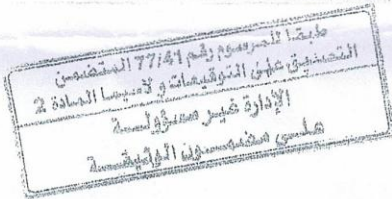 طبقا للمرسوم رقم 77/41 المتضمن
التصديق على التوقيعات و لاسيما المادة 2
الإدارة غير مسؤولة
على مضمون الوثيقة